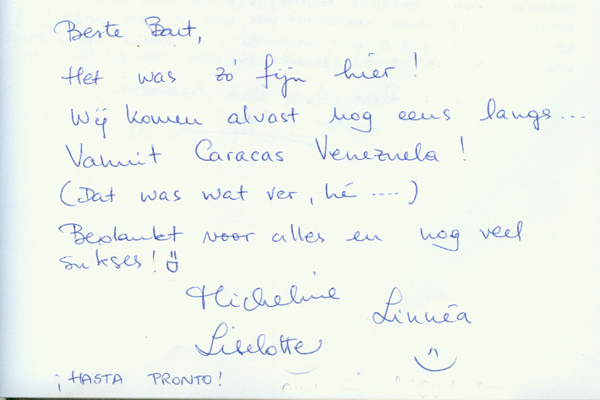 Beste Bart,
Het was zó fijn hier!
Wij komen alvast nog eens langs...
Vanuit Caracas Venezuela!
(Dat was wat ver, hé ....)
Bedankt voor alles en nog veel
sukses!
Micheline
Linnéa
Liselotte
¡HASTA PRONTO!